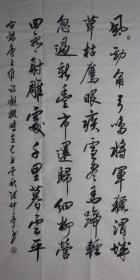 風勁角弓鳴將軍獵渭城
草枯鷹眼疾雪盡馬蹄輕
忽過新豐市還歸細柳營
回看射雕處千里暮雲平
王維詩觀獵